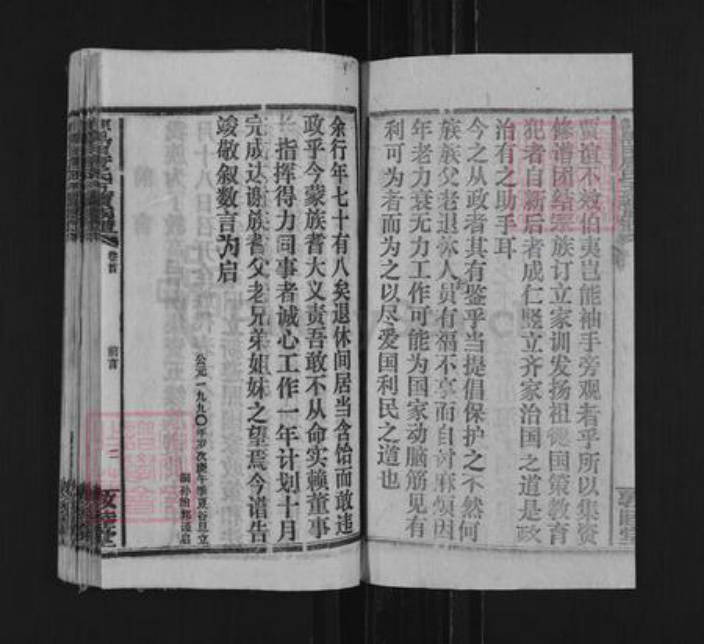 贾谊不效伯夷岂能袖手旁观者乎所以集资
修谱团结宗族订立家训发扬祖德国策教育
犯者自新后者成仁竖立齐家治国之道是政
治有之助手耳
今之从政者其有鉴乎当提倡保护之不然何
族族父老退休人员有福不享而自讨麻烦因
年老力衰无力工作可能为国家动脑筋见有
利可为者而为之以尽爱国利民之道也
余行年七十有八矣退休间居当含饴而敢违
政乎今蒙族耆大义责吾敢不从命实赖董事
指挥得力同事者诚心工作一年计划十月
完成达谢族耆父老兄弟姐妹之望焉今谱告
竣敬叙数言为启
公元一九九〇年岁次庚午季夏谷旦立
卷首
前言
二